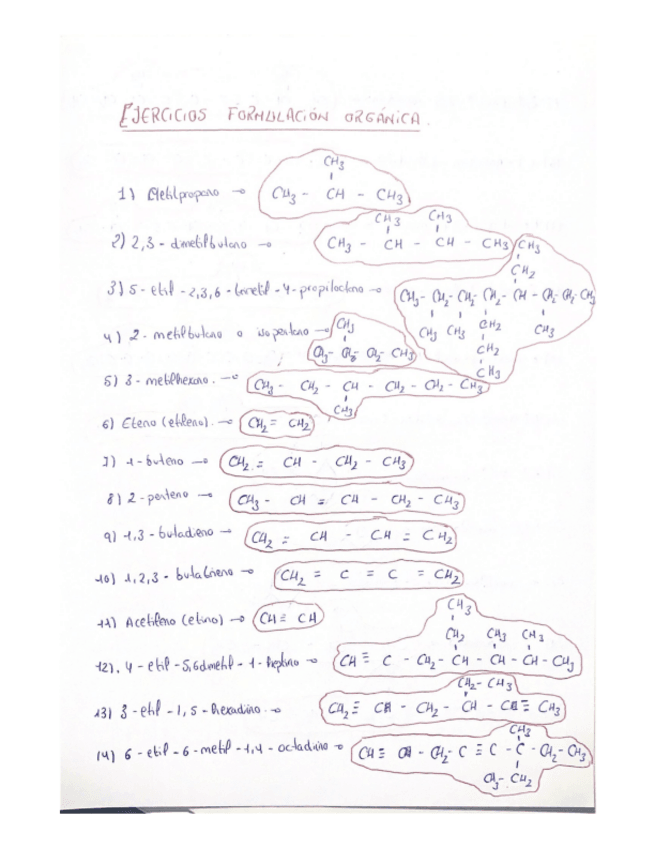 EJERCICIOS FORMULACIÓN ORGÁNICA.
CH3
1) Metilpropano → CH3 - CH - CH3
CH3 CH3
2) 2,3 - dimetilbutano → CH3 - CH - CH - CH3
CH3
CH2
3) 5 - etil - 2,3,6 - trimetil - 4 - propiloctano → CH3 - CH2 - CH2 - CH2 - CH - CH2 - CH2 - CH3
CH3 CH3 CH2 CH3
CH2
CH3
CH3
4) 2 - metilbutano o isopentano → CH3 - CH2 - CH2 - CH3
5) 3 - metilhexano. → CH3 - CH2 - CH - CH2 - CH2 - CH3
CH3
6) Eteno (etileno). → CH2 = CH2
7) 1 - buteno → CH2 = CH - CH2 - CH3
8) 2 - penteno → CH3 - CH = CH - CH2 - CH3
9) 1,3 - butadieno → CH2 = CH - CH = CH2
10) 1,2,3 - butatrieno → CH2 = C = C = CH2
11) Acetileno (etino) → CH ≡ CH
CH3
CH2 CH3 CH3
12). 4 - etil - 5,6dimetil - 1 - heptino → CH ≡ C - CH2 - CH - CH - CH - CH3
CH2 - CH3
13) 3 - etil - 1,5 - hexadiino. → CH2 ≡ CH - CH2 - CH - CH ≡ CH3
CH3
14) 6 - etil - 6 - metil - 1,4 - octadiino → CH ≡ CH - CH2 - C ≡ C - C - CH2 - CH3
CH3 - CH2